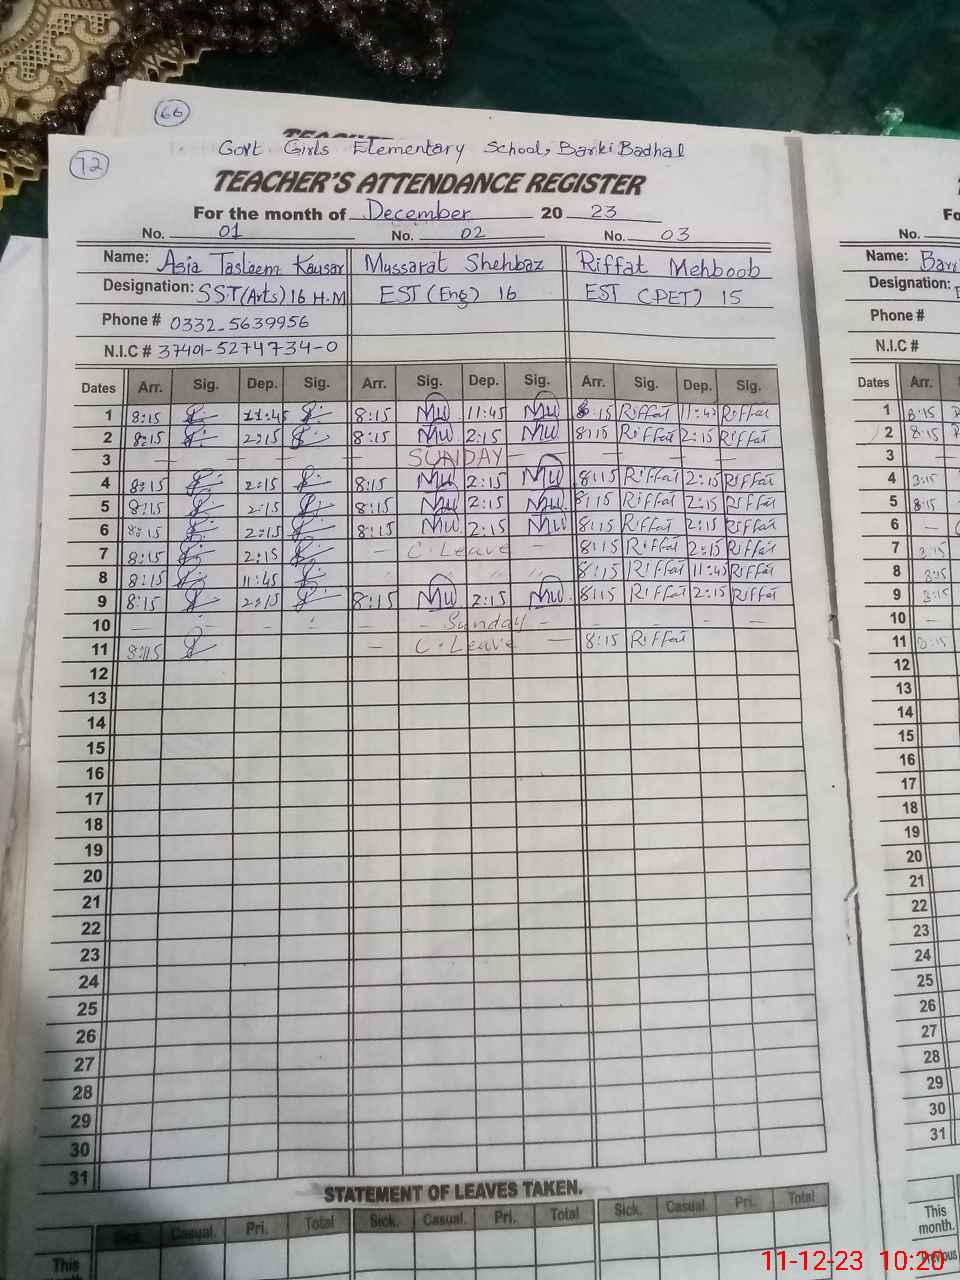 66
Govt Girls Elementary School, Barki Badhal
72
TEACHER'S ATTENDANCE REGISTER
For the month of December 2023
No. 01 No. 02 No. 03 No.
Name: Asia Tasleem Kausar Mussarat Shehbaz Riffat Mehboob Name:
Designation: SST(Arts) 16 H.M EST (Eng) 16 EST (PET) 15 Designation:
Phone # 0332-5639956 Phone #
N.I.C # 37401-5274734-0 N.I.C #
Dates Arr. Sig. Dep. Sig. Arr. Sig. Dep. Sig. Arr. Sig. Dep. Sig. Dates Arr.
1 8:15 11:45 8:15 Mu 11:45 Mu 8:15 Riffat 11:45 Riffat 1 8:15
2 8:15 2:15 8:15 Mu 2:15 Mu 8:15 Riffat 2:15 Riffat 2 8:15
3 — — — — — SUNDAY — — — — — — 3 —
4 8:15 2:15 8:15 Mu 2:15 Mu 8:15 Riffat 2:15 Riffat 4 8:15
5 8:15 2:15 8:15 Mu 2:15 Mu 8:15 Riffat 2:15 Riffat 5 8:15
6 8:15 2:15 8:15 Mu 2:15 Mu 8:15 Riffat 2:15 Riffat 6 —
7 8:15 2:15 — C.Leave — 8:15 Riffat 2:15 Riffat 7 8:15
8 8:15 11:45 8:15 Riffat 11:45 Riffat 8 8:15
9 8:15 2:15 8:15 Mu 2:15 Mu 8:15 Riffat 2:15 Riffat 9 8:15
10 — — — — — Sunday — — — — — 10 —
11 8:15 — C.Leave — 8:15 Riffat 11 8:15
12 12
13 13
14 14
15 15
16 16
17 17
18 18
19 19
20 20
21 21
22 22
23 23
24 24
25 25
26 26
27 27
28 28
29 29
30 30
31 31
STATEMENT OF LEAVES TAKEN.
Sick. Casual. Pri. Total Sick. Casual. Pri. Total Sick. Casual. Pri. Total
This month. This month.
Previous
11-12-23 10:20